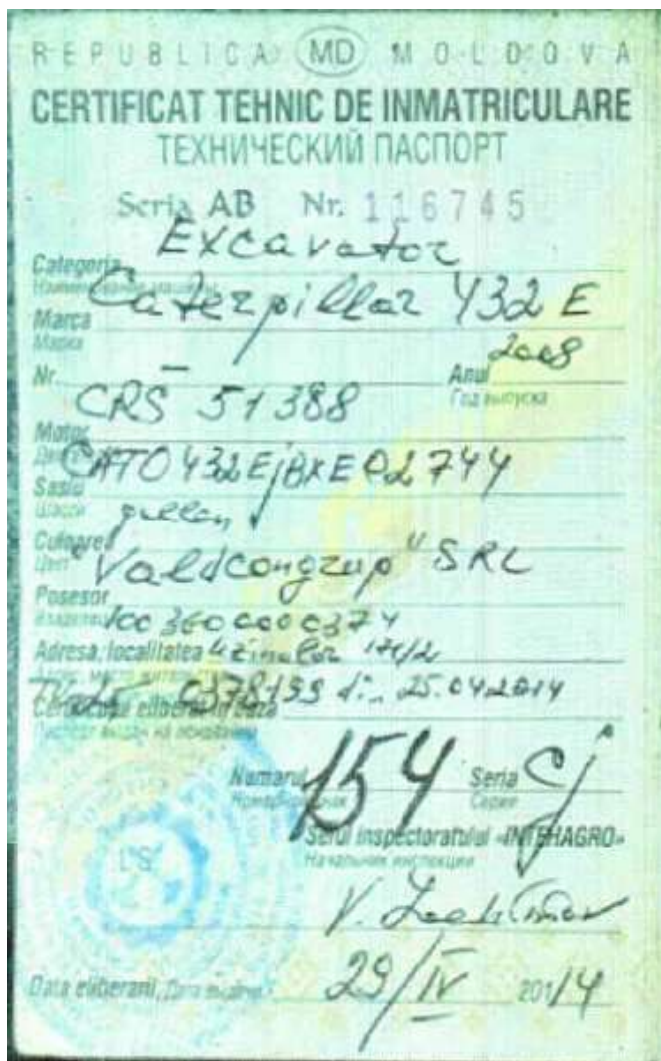 REPUBLICA MD MOLDOVA
CERTIFICAT TEHNIC DE INMATRICULARE
ТЕХНИЧЕСКИЙ ПАСПОРТ
Seria AB Nr. 116745
Excavator
Categoria
Наименование машины
Caterpillar 432 E
Marca
Марка
2008
Nr. — Anul
Год выпуска
CRS 51388
Motor
CAT0432EjBXE02744
Sasiu
Шасси
galben
Culoarea
Цвет
"Valdcongrup" SRL
Posesor
Владелец
1003600000374
Adresa, localitatea Uzinelor 171/2
0378199 din 25.04.2014
Certificatul eliberat in baza
Паспорт выдан на основании
Numarul 154 Seria Cj
Номерной знак Серия
Seful inspectoratului «INTEHAGRO»
Начальник инспекции
L'S
V.
Data eliberarii, Дата выдачи 29/IV 2014